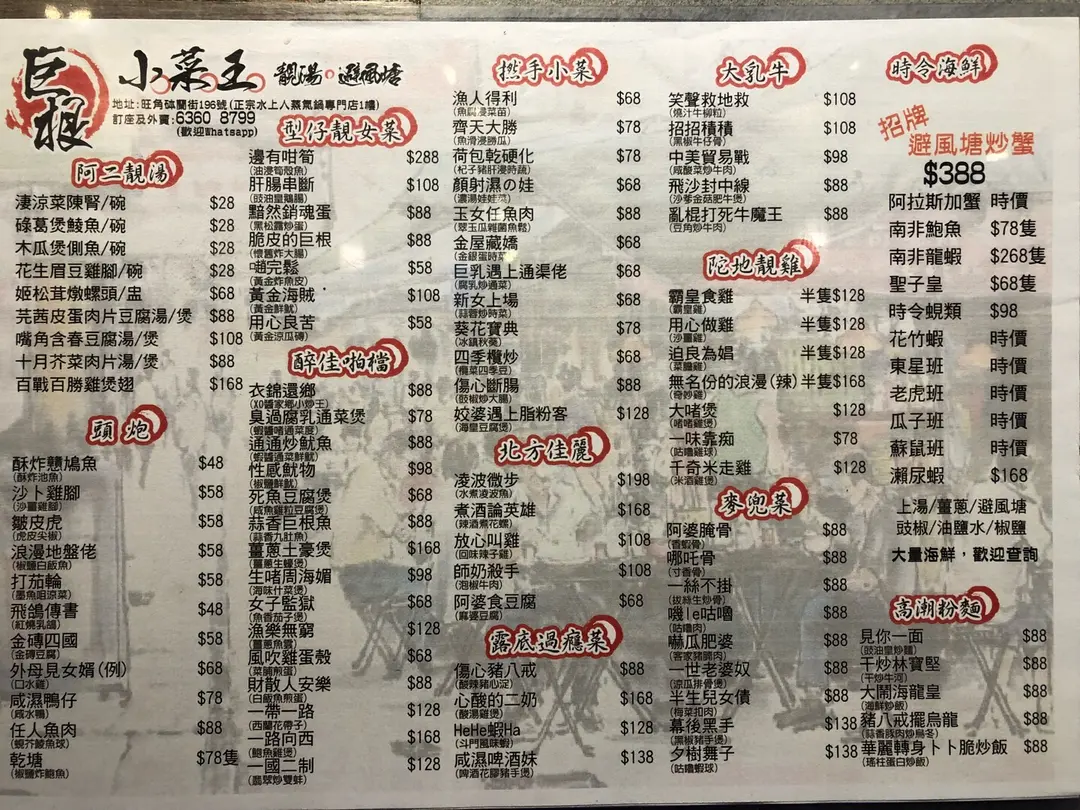 巨根
小菜王 靚湯。避風塘
地址:旺角砵蘭街196號(正宗水上人蒸氣鍋專門店1樓)
訂座及外賣:6360 8799
(歡迎Whatsapp)
阿二靚湯
淒涼菜陳腎/碗 $28
碌葛煲鯪魚/碗 $28
木瓜煲側魚/碗 $28
花生眉豆雞腳/碗 $28
姬松茸燉螺頭/盅 $68
芫茜皮蛋肉片豆腐湯/煲 $88
嘴角含春豆腐湯/煲 $108
十月芥菜肉片湯/煲 $88
百戰百勝雞煲翅 $168
頭炮
酥炸戇鳩魚 $48
(酥炸池魚)
沙卜雞腳 $58
(沙薑雞腳)
皺皮虎 $58
(虎皮尖椒)
浪漫地盤佬 $58
(椒鹽白飯魚)
打茄輪 $58
(墨魚咀涼菜)
飛鴿傳書 $48
(紅燒乳鴿)
金磚四國 $58
(金磚豆腐)
外母見女婿(例) $68
(口水雞)
咸濕鴨仔 $78
(咸水鴨)
任人魚肉 $88
(蜆芥鯪魚球)
乾塘 $78隻
(椒鹽炸鮑魚)
型仔靚女菜
邊有咁筍 $288
(油浸筍殼魚)
肝腸串斷 $108
(豉油皇鵝腸)
黯然銷魂蛋 $88
(黑松露炒蛋)
脆皮的巨根 $88
(懷舊炸大腸)
嘥完鬆 $58
(黃金炸魚皮)
黃金海賊 $108
(黃金鮮魷)
用心良苦 $58
(黃金涼瓜磚)
醉佳啪檔
衣錦還鄉 $88
(XO醬家鄉小炒王)
臭過腐乳通菜煲 $78
(蝦醬啫通菜煲)
通通炒魷魚 $88
(蝦醬通菜鮮魷)
性感魷物 $98
(椒鹽鮮魷)
死魚豆腐煲 $68
(咸魚雞粒豆腐煲)
蒜香巨根魚 $88
(蒜香九肚魚)
薑蔥土豪煲 $168
(薑蔥生蠔煲)
生啫周海媚 $98
(海味什菜煲)
女子監獄 $68
(魚香茄子煲)
漁樂無窮 $128
(薑蔥魚雲)
風吹雞蛋殼 $68
(菜脯煎蛋)
財散人安樂 $88
(白飯魚煎蛋)
一帶一路 $128
(西蘭花帶子)
一路向西 $168
(鮑魚雞煲)
一國二制 $128
(翡翠炒雙蚌)
撚手小菜
漁人得利 $68
(魚腐浸菜苗)
齊天大勝 $78
(魚滑浸勝瓜)
荷包乾硬化 $78
(杞子豬肝浸時蔬)
顏射濕の娃 $68
(濃湯娃娃菜)
玉女任魚肉 $88
(翠玉瓜雜菌魚鬆)
金屋藏嬌 $68
(金銀蛋時菜)
巨乳遇上通渠佬 $68
(腐乳炒通菜)
新女上場 $68
(蒜蓉炒時菜)
葵花寶典 $78
(冰鎮秋葵)
四季欖炒 $68
(欖菜四季豆)
傷心斷腸 $88
(豉椒炒大腸)
姣婆遇上脂粉客 $128
(海皇豆腐煲)
北方佳麗
凌波微步 $198
(水煮凌波魚)
煮酒論英雄 $168
(辣酒煮花螺)
放心叫雞 $108
(回味辣子雞)
師奶殺手 $108
(泡椒牛肉)
阿婆食豆腐 $68
(麻婆豆腐)
露底過癮菜
傷心豬八戒 $88
(酸辣豬心淀)
心酸的二奶 $168
(酸湯雞煲)
HeHe蝦Ha $128
(斗門風味蝦)
咸濕啤酒妹 $138
(啤酒花膠豬手煲)
大乳牛
笑聲救地救 $108
(燒汁牛柳粒)
招招積積 $108
(黑椒牛仔骨)
中美貿易戰 $98
(咸酸菜炒牛肉)
飛沙封中線 $88
(沙爹金菇肥牛煲)
亂棍打死牛魔王 $88
(豆角炒牛肉)
陀地靚雞
霸皇食雞 半隻$128
(霸皇雞)
用心做雞 半隻$128
(沙薑雞)
迫良為娼 半隻$128
(菜膽雞)
無名份的浪漫(辣) 半隻$168
(奇妙雞)
大啫煲 $128
(啫啫雞煲)
一味靠痴 $78
(咕嚕雞球)
千奇米走雞 $128
(米酒雞煲)
麥兜菜
阿婆腌骨 $88
(香蝦骨)
哪吒骨 $88
(寸香骨)
一絲不掛 $88
(拔絲生炒骨)
嘰le咕嚕 $88
(咕嚕肉)
嚇瓜肥婆 $88
(客家豬腩肉)
一世老婆奴 $88
(涼瓜排骨煲)
半生兒女債 $88
(梅菜扣肉)
幕後黑手 $138
(黑椒豬手煲)
夕樹舞子 $138
(咕嚕蝦球)
時令海鮮
招牌
避風塘炒蟹
$388
阿拉斯加蟹 時價
南非鮑魚 $78隻
南非龍蝦 $268隻
聖子皇 $68隻
時令蜆類 $98
花竹蝦 時價
東星班 時價
老虎班 時價
瓜子班 時價
蘇鼠班 時價
瀨尿蝦 $168
上湯/薑蔥/避風塘
豉椒/油鹽水/椒鹽
大量海鮮，歡迎查詢
高潮粉麵
見你一面 $88
(豉油皇炒麵)
干炒林寶堅 $88
(干炒牛河)
大鬧海龍皇 $88
(海鮮炒飯)
豬八戒擺烏龍 $88
(蒜香豚肉炒烏冬)
華麗轉身卜卜脆炒飯 $88
(瑤柱蛋白炒飯)